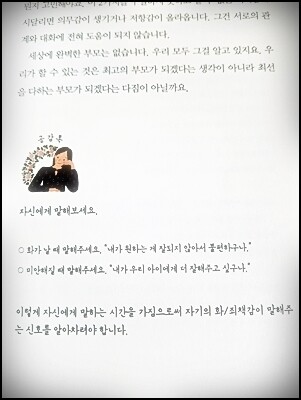 시달리면 의무감이 생기거나 저항감이 올라옵니다. 그건 서로의 관
계와 대화에 전혀 도움이 되지 않습니다.
세상에 완벽한 부모는 없습니다. 우리 모두 그걸 알고 있지요. 우
리가 할 수 있는 것은 최고의 부모가 되겠다는 생각이 아니라 최선
을 다하는 부모가 되겠다는 다짐이 아닐까요.
공감톡
자신에게 말해보세요.
○ 화가 날 때 말해주세요. "내가 원하는 게 잘되지 않아서 불편하구나."
○ 미안해질 때 말해주세요. "내가 우리 아이에게 더 잘해주고 싶구나."
이렇게 자신에게 말하는 시간을 가짐으로써 자기의 화/죄책감이 말해주
는 신호를 알아차려야 합니다.